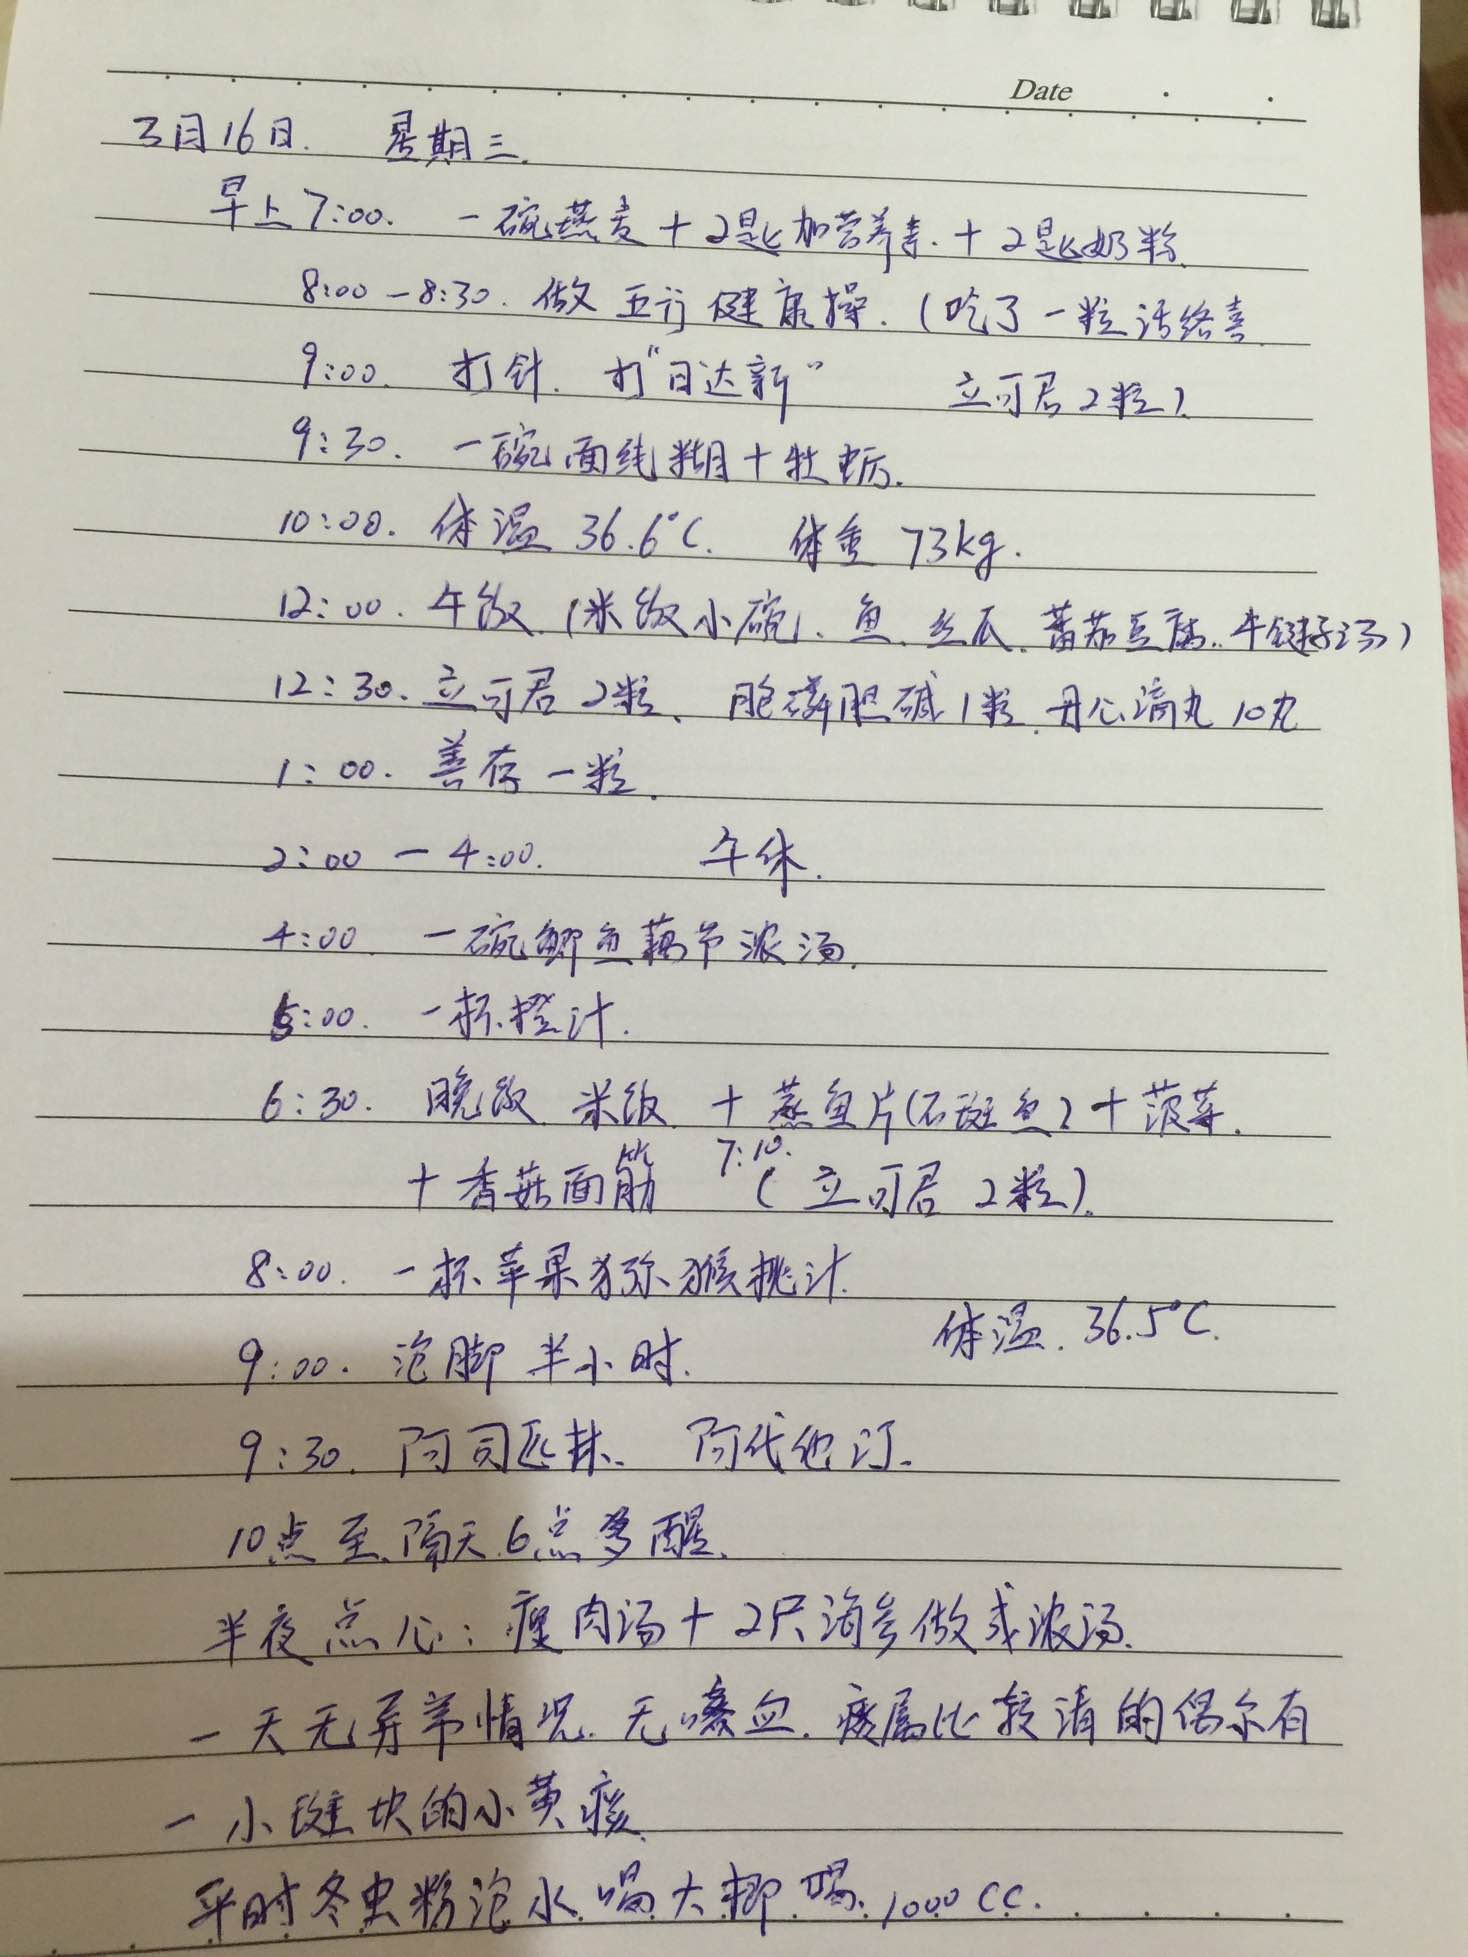 Date
3月16日. 星期三.
早上7:00. 一碗燕麦+2匙加营养素.+2匙奶粉.
8:00-8:30. 做五行健康操.(吃了一粒活络喜
9:00. 打针. 打"日达新" 立可君2粒).
9:30. 一碗面线糊+牡蛎.
10:00. 体温 36.6℃. 体重 73kg.
12:00. 午饭.(米饭小碗).鱼.丝瓜.蕃茄豆腐..牛腱子汤)
12:30. 立可君2粒、胞磷胆碱1粒.丹心滴丸10丸
1:00. 善存一粒.
2:00-4:00. 午休.
4:00 一碗鲫鱼藕节浓汤.
5:00. 一杯橙汁.
6:30. 晚饭 米饭 +蒸鱼片(石斑鱼)+菠菜.
7:10.
+香菇面筋 (立可君2粒).
8:00. 一杯苹果猕猴桃汁.
体温. 36.5℃.
9:00. 泡脚半小时.
9:30. 阿司匹林. 阿伐他汀.
10点至隔天6点多醒.
半夜点心:瘦肉汤+2只海参做成浓汤.
一天无异常情况.无嗽血.痰属比较清的偶尔有
一小斑块的小黄痰.
平时冬虫粉泡水.喝大 喝.1000CC.